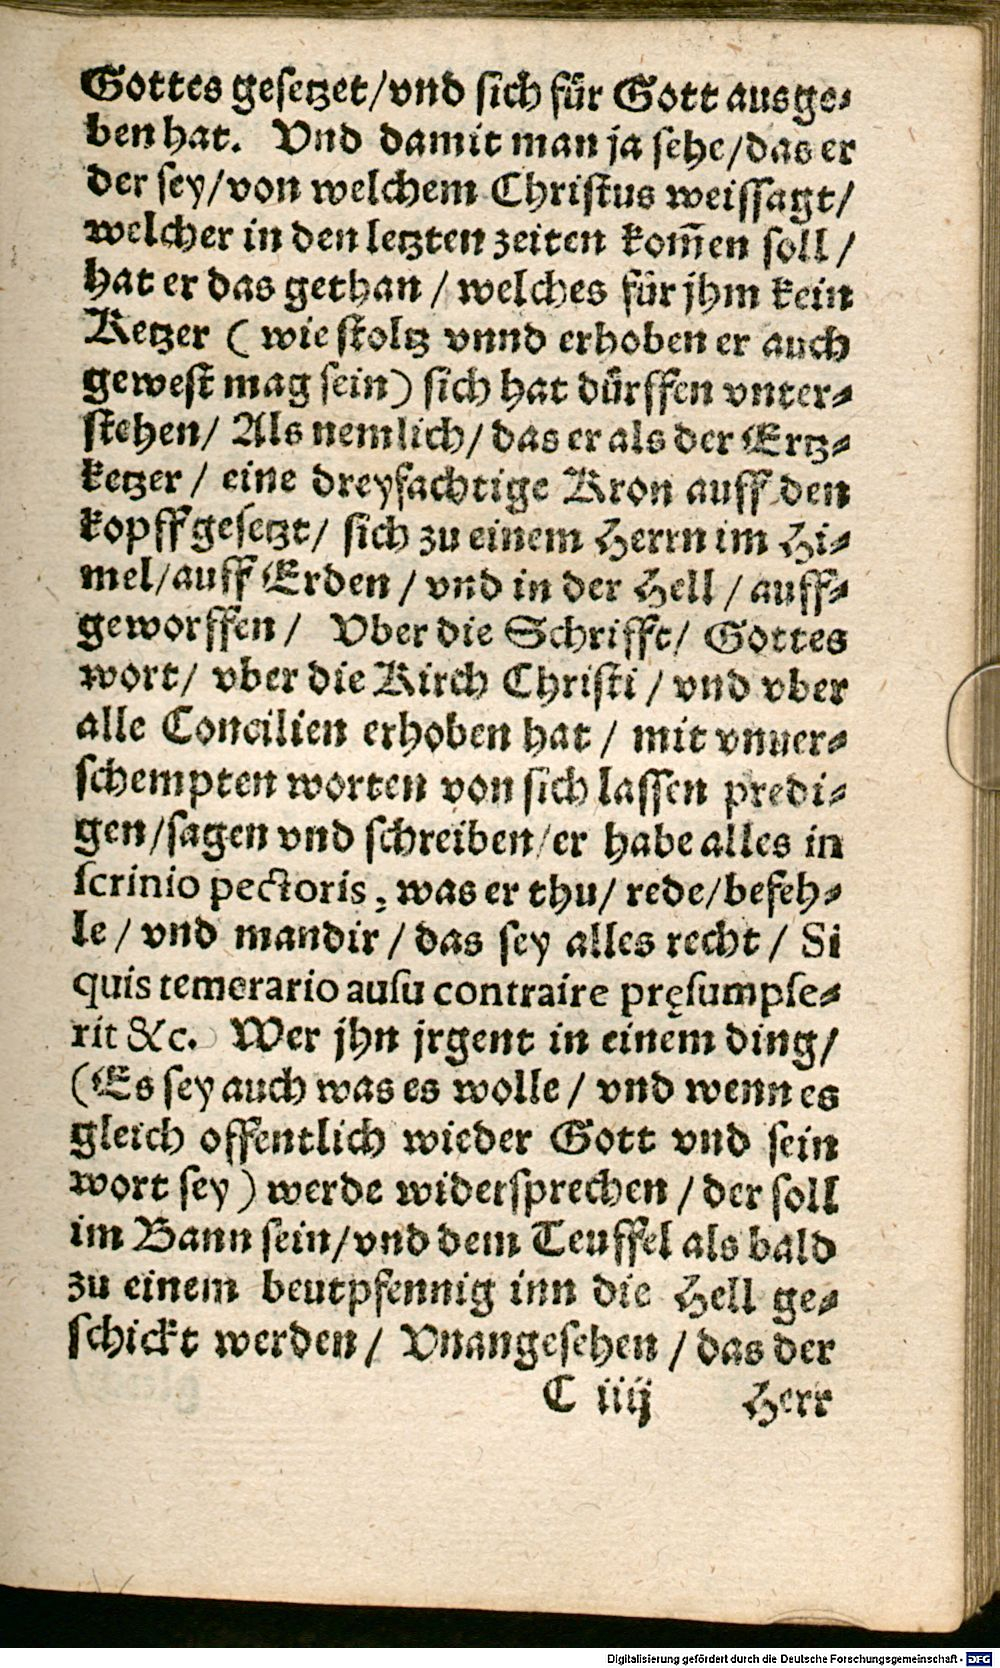 Gottes gesetzet/vnd sich für Gott ausge⸗
ben hat. Vnd damit man ja sehe/das er
der sey/von welchem Christus weissagt/
welcher in den letzten zeiten kom̃en soll /
hat er das gethan / welches für jhm kein
Ketzer ( wie stoltz vnnd erhoben er auch
gewest mag sein) sich hat dürffen vnter⸗
stehen/ Als nemlich/ das er als der Ertz⸗
ketzer / eine dreyfachtige Kron auff den
kopff gesetzt/ sich zu einem Herrn im Hi⸗
mel/auff Erden / vnd in der Hell / auff⸗
geworffen / Vber die Schrifft/ Gottes
wort/ vber die Kirch Christi / vnd vber
alle Concilien erhoben hat / mit vnuer⸗
schempten worten von sich lassen predi⸗
gen/sagen vnd schreiben/er habe alles in
scrinio pectoris, was er thu/ rede/befeh⸗
le / vnd mandir / das sey alles recht / Si
quis temerario ausu contraire pręsumpse⸗
rit &c. Wer jhn jrgent in einem ding/
(Es sey auch was es wolle / vnd wenn es
gleich offentlich wieder Gott vnd sein
wort sey ) werde widersprechen / der soll
im Bann sein/vnd dem Teuffel als bald
zu einem beutpfennig inn die Hell ge⸗
schickt werden / Vnangesehen / das der
C iiij Herr
Digitalisierung gefördert durch die Deutsche Forschungsgemeinschaft - DFG